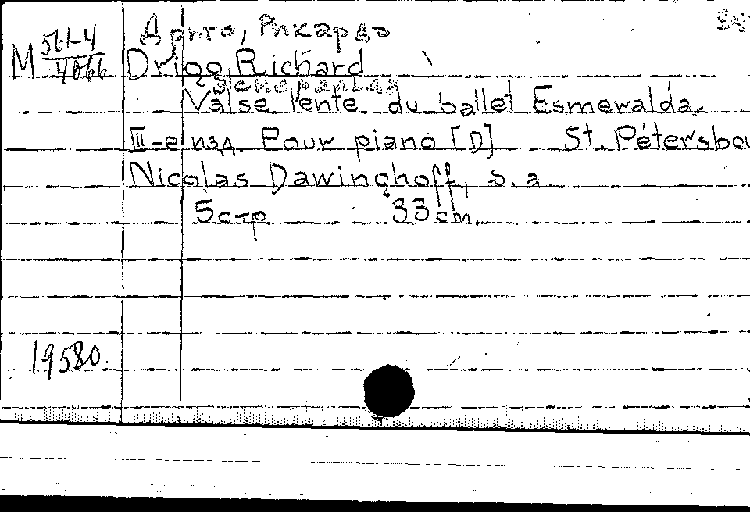 Дриго, Рикардо
M 561-4/4066 Drigo Richard
Valse lente du ballet Esmeralda.
III-е изд. Pour piano [D] St. Pétersbou
Nicolas Dawinghoff, s.a
5 стр 33 cm.
19580.